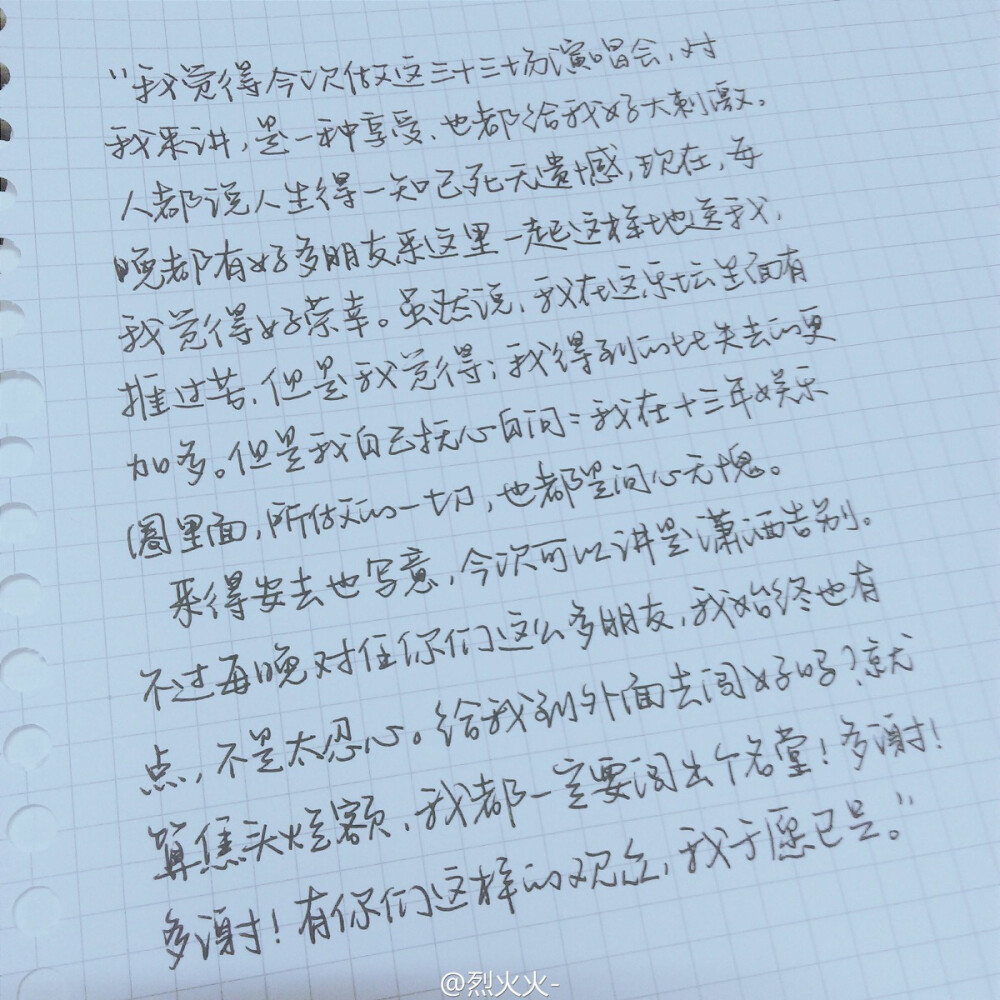 “我觉得今次做这三十三场演唱会，对
我来讲，是一种享受、也都给我好大刺激。
人都说人生得一知己死无遗憾，现在，每
晚都有好多朋友来这里一起这样地送我，
我觉得好荣幸。虽然说，我在这乐坛里面有
捱过苦，但是我觉得；我得到的比失去的更
加多。但是我自己抚心自问：我在十三年娱乐
圈里面，所做的一切，也都是问心无愧。
来得安去也写意，今次可以讲是潇洒告别。
不过每晚对住你们这么多朋友，我始终也有
点，不是太忍心。给我到外面去闯好吗？就
算焦头烂额，我都一定要闯出个名堂！多谢！
多谢！有你们这样的观众，我于愿已足。”
@烈火火-